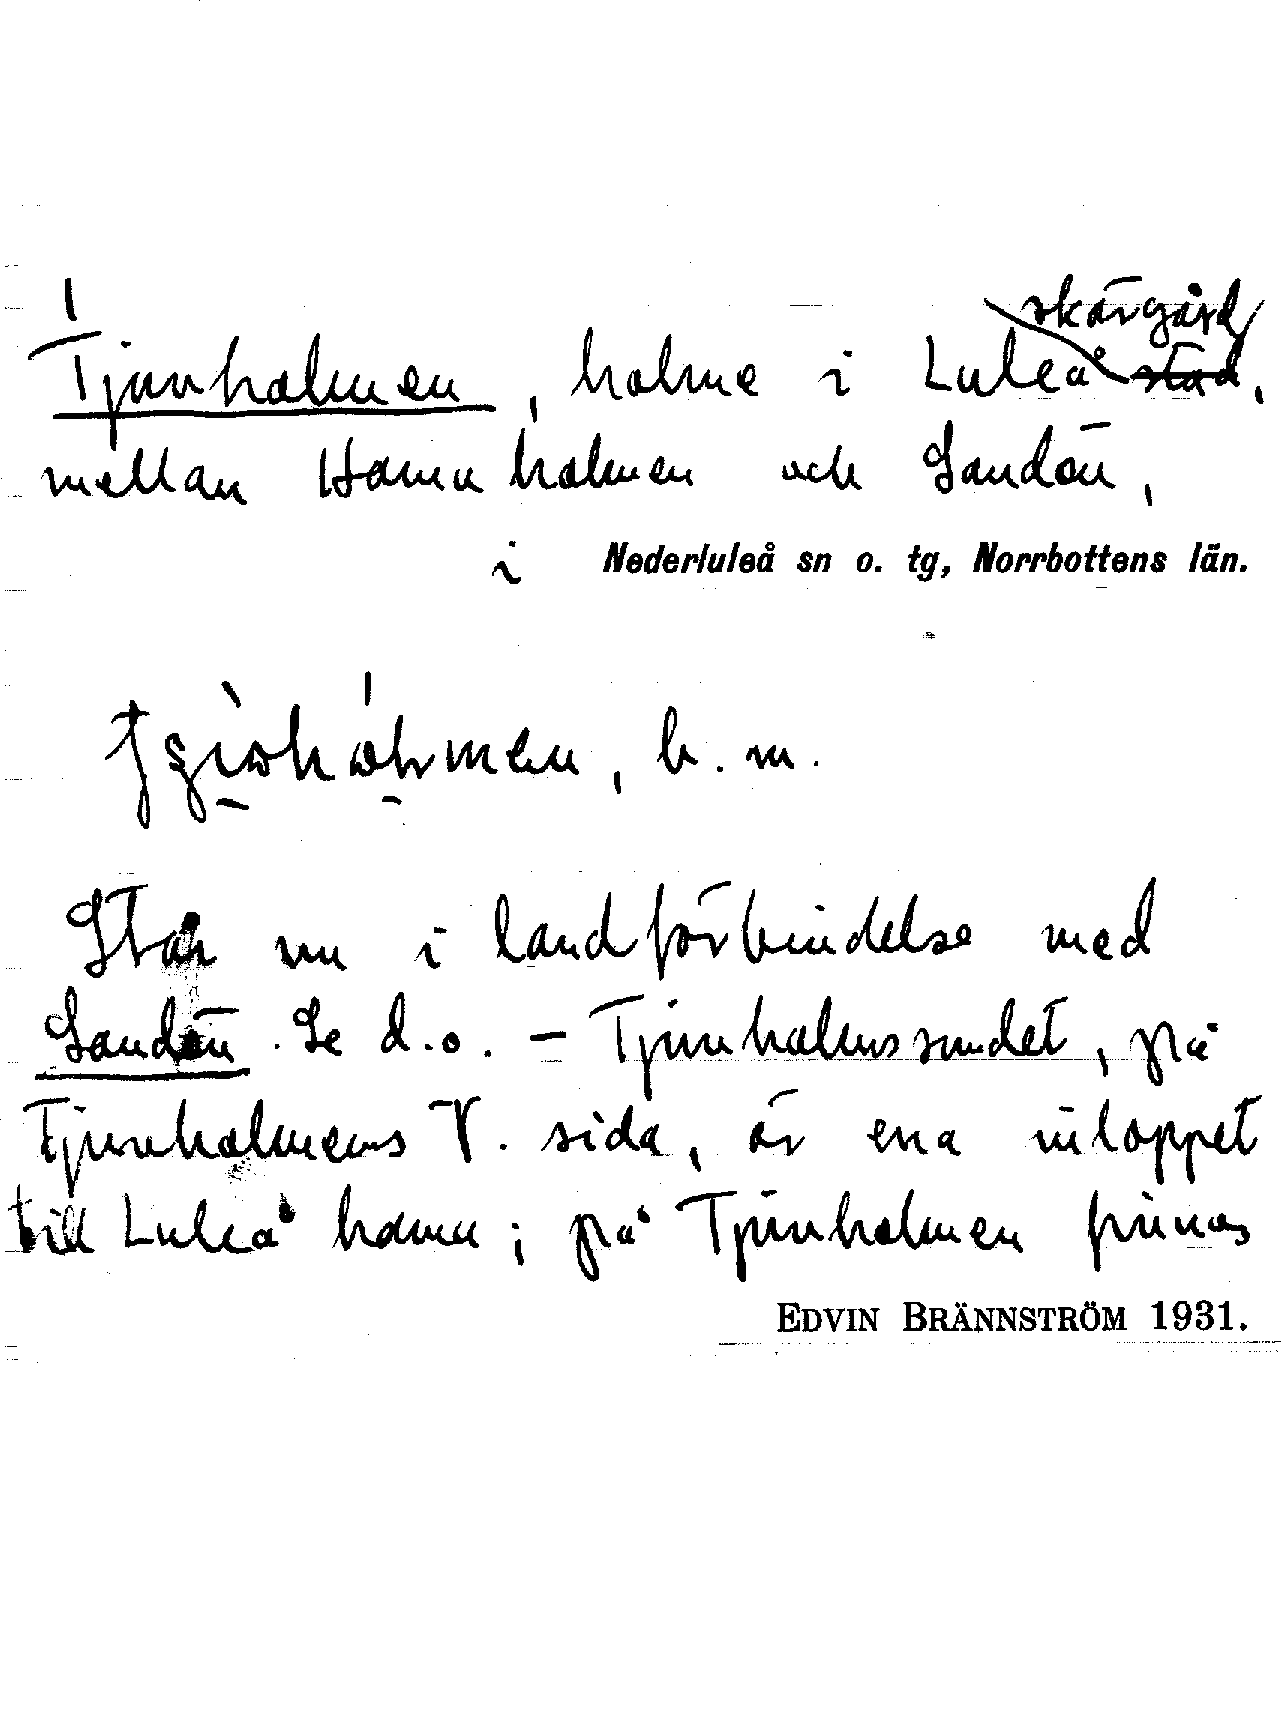 skärgård
Tjuvholmen, holme i Luleå stad,
mellan Hamnholmen och Sandön,
i Nederluleå sn o. tg, Norrbottens län.
b. m.
Står nu i landförbindelse med
Sandön. Se d.o. – Tjuvholmssundet, på
Tjuvholmens V. sida, är ena inloppet
till Luleå hamn; på Tjuvholmen finnas
EDVIN BRÄNNSTRÖM 1931.